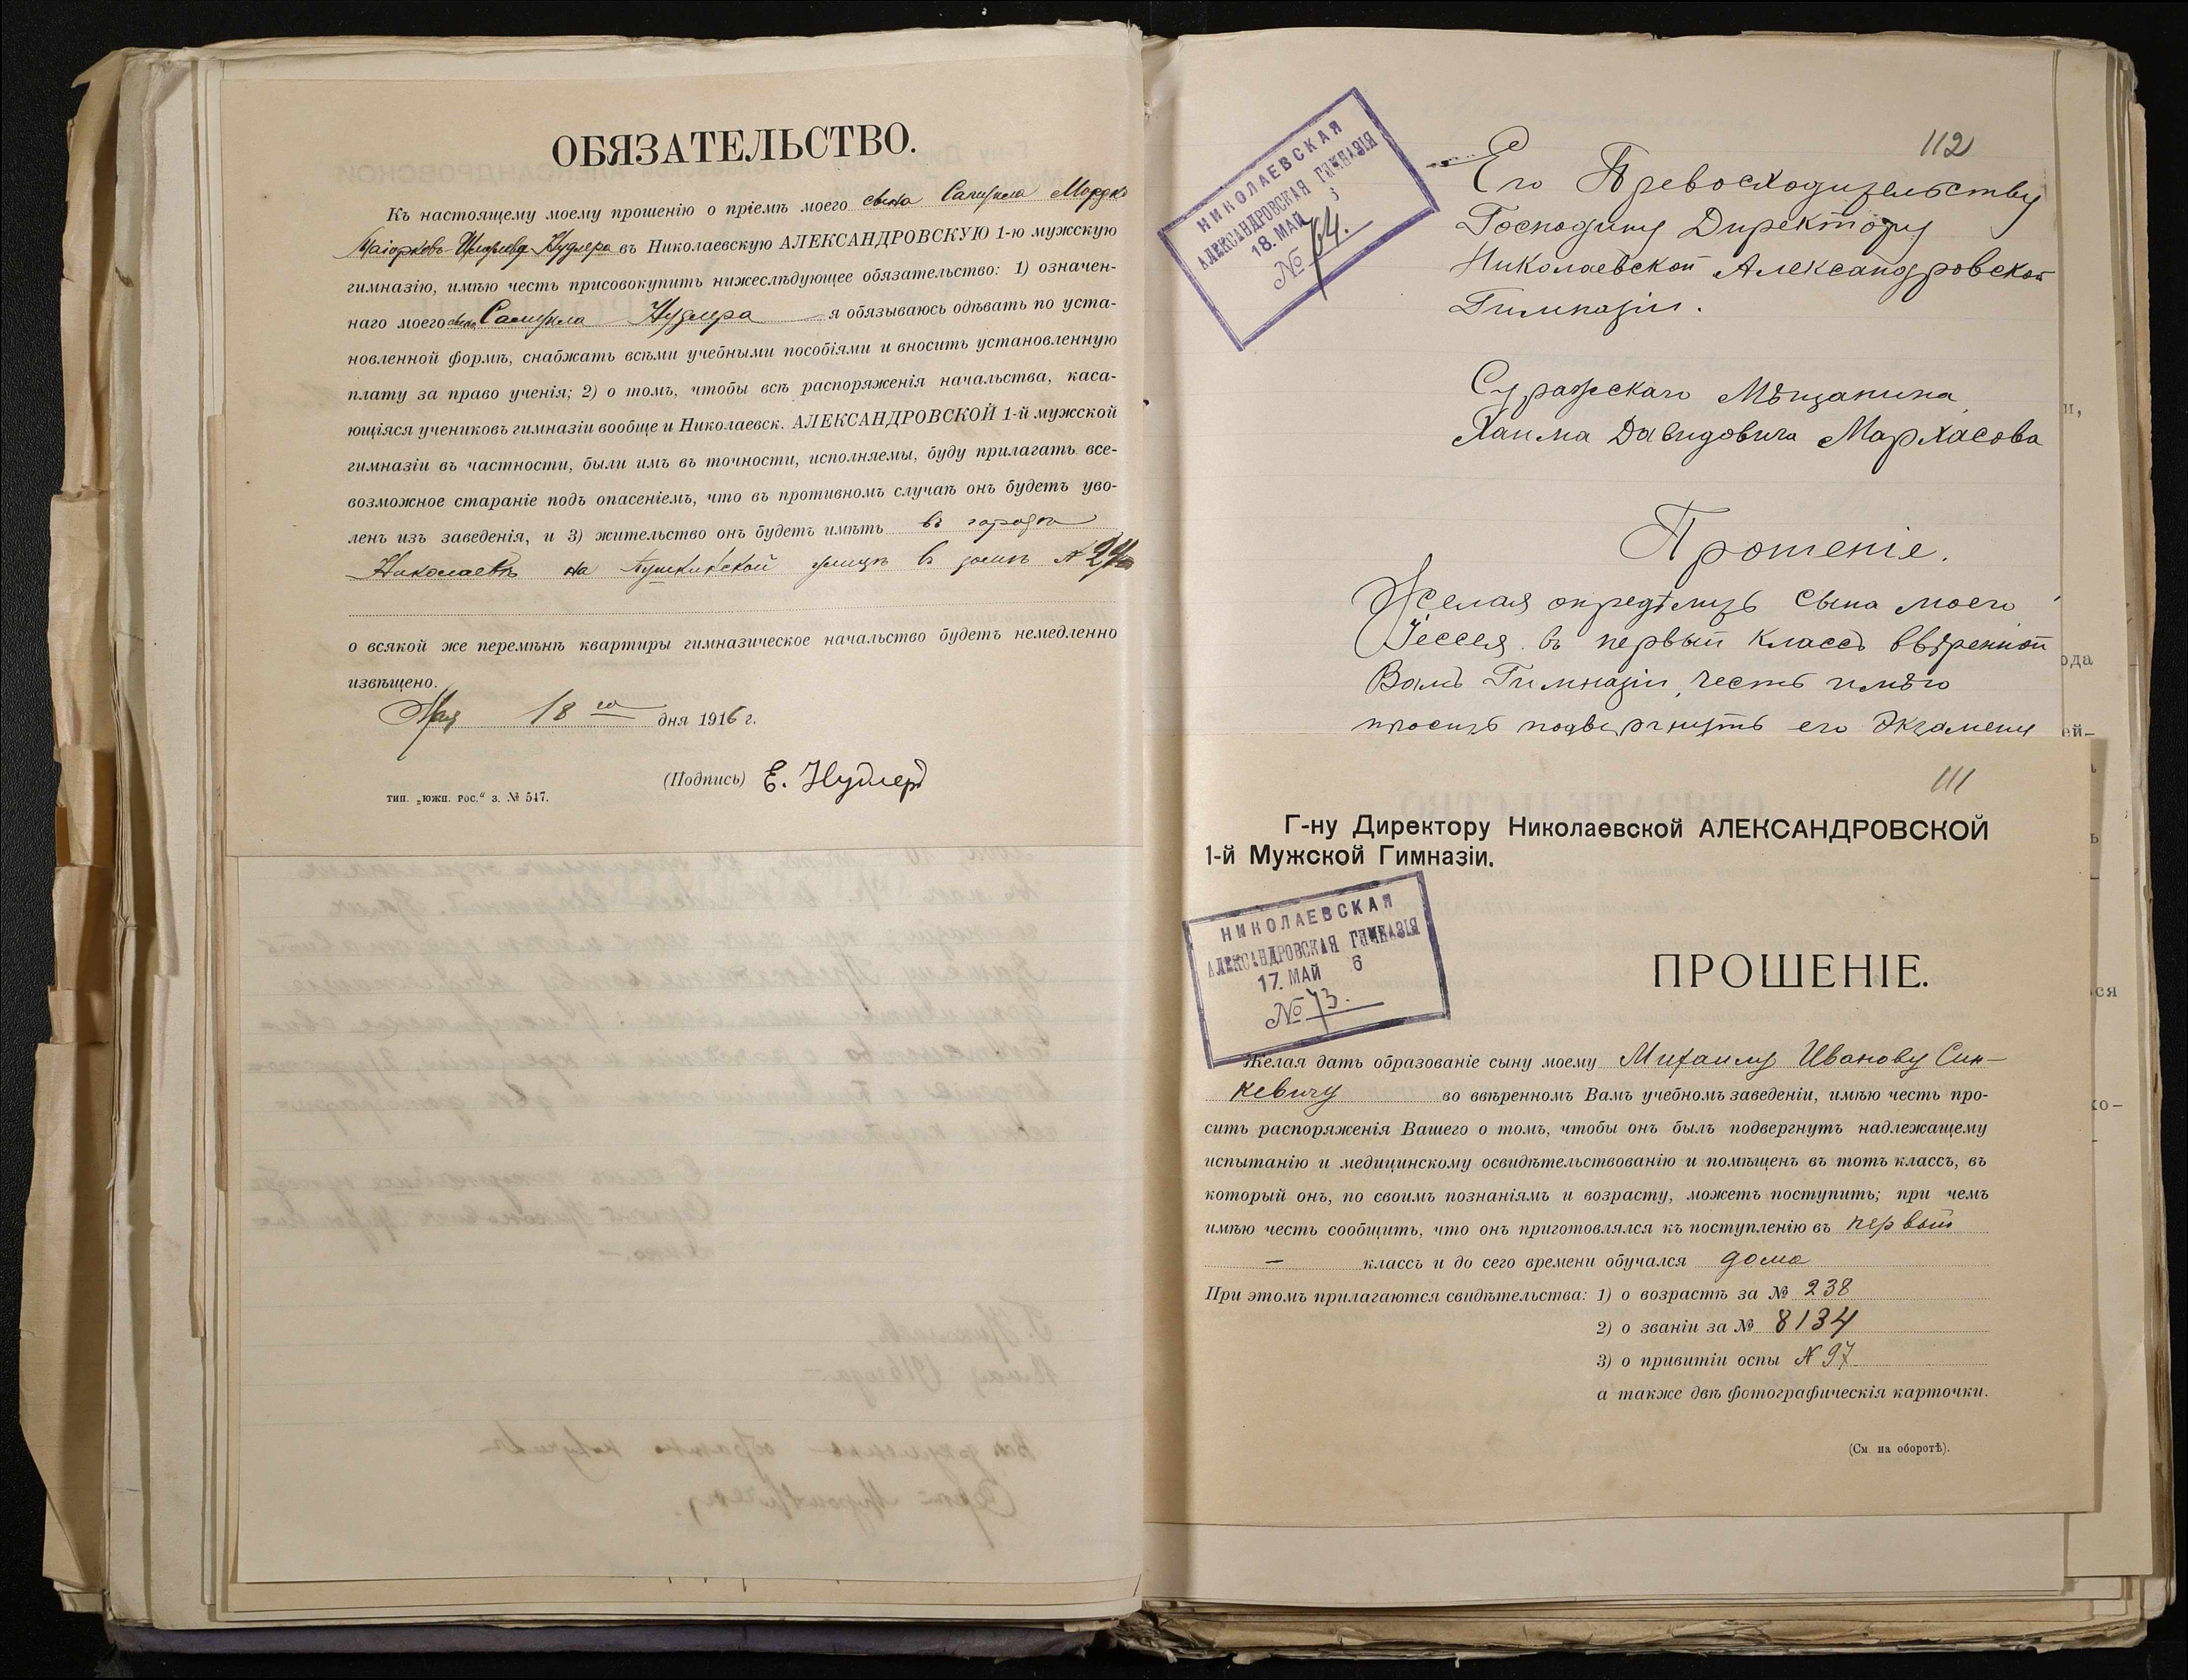 ОБЯЗАТЕЛЬСТВО.
Къ настоящему моему прошенію о пріемѣ моего сына Самуила Мордко
Нудлера въ Николаевскую АЛЕКСАНДРОВСКУЮ 1-ю мужскую
гимназію, имѣю честь присовокупить нижеслѣдующее обязательство: 1) означен-
наго моего сына Самуила Нудлера я обязываюсь одѣвать по уста-
новленной формѣ, снабжать всѣми учебными пособіями и вносить установленную
плату за право ученія; 2) о томъ, чтобы всѣ распоряженія начальства, каса-
ющіяся учениковъ гимназіи вообще и Николаевск. АЛЕКСАНДРОВСКОЙ 1-й мужской
гимназіи въ частности, были имъ въ точности, исполняемы, буду прилагать все-
возможное стараніе подъ опасеніемъ, что въ противномъ случаѣ онъ будетъ уво-
ленъ изъ заведенія, и 3) жительство онъ будетъ имѣть въ городѣ
Николаевѣ на Пушкинской улицѣ в домѣ №
о всякой же перемѣнѣ квартиры гимназическое начальство будетъ немедленно
извѣщено.
Мая 18 го дня 1916 г.
(Подпись) Е. Нудлеръ
тип. „южн. рос.“ з. № 547.
112
НИКОЛАЕВСКАЯ
АЛЕКСАНДРОВСКАЯ ГИМНАЗІЯ
18. МАЙ
№ 74.
Его Превосходительству
Господину Директору
Николаевской Александровской
Гимназіи.
Суражскаго Мѣщанина
Хаима Давидовича Мархасова
Прошеніе.
Желая опредѣлить сына моего
Іессея въ первый классъ ввѣренной
Вамъ Гимназіи, честь имѣю
просить подвергнуть его Экзамену
111
Г-ну Директору Николаевской АЛЕКСАНДРОВСКОЙ
1-й Мужской Гимназіи.
НИКОЛАЕВСКАЯ
АЛЕКСАНДРОВСКАЯ ГИМНАЗІЯ
17. МАЙ 6
№ 73.
ПРОШЕНІЕ.
Желая дать образованіе сыну моему Михаилу Иванову Син-
кевичу во ввѣренномъ Вамъ учебномъ заведеніи, имѣю честь про-
сить распоряженія Вашего о томъ, чтобы онъ былъ подвергнутъ надлежащему
испытанію и медицинскому освидѣтельствованію и помѣщенъ въ тотъ классъ, въ
который онъ, по своимъ познаніямъ и возрасту, можетъ поступить; при чемъ
имѣю честь сообщить, что онъ приготовлялся къ поступленію въ первый
— классъ и до сего времени обучался дома
При этомъ прилагаются свидѣтельства: 1) о возрастѣ за № 238
2) о званіи за № 8134
3) о привитіи оспы № 97
а также двѣ фотографическія карточки.
(См. на оборотѣ).